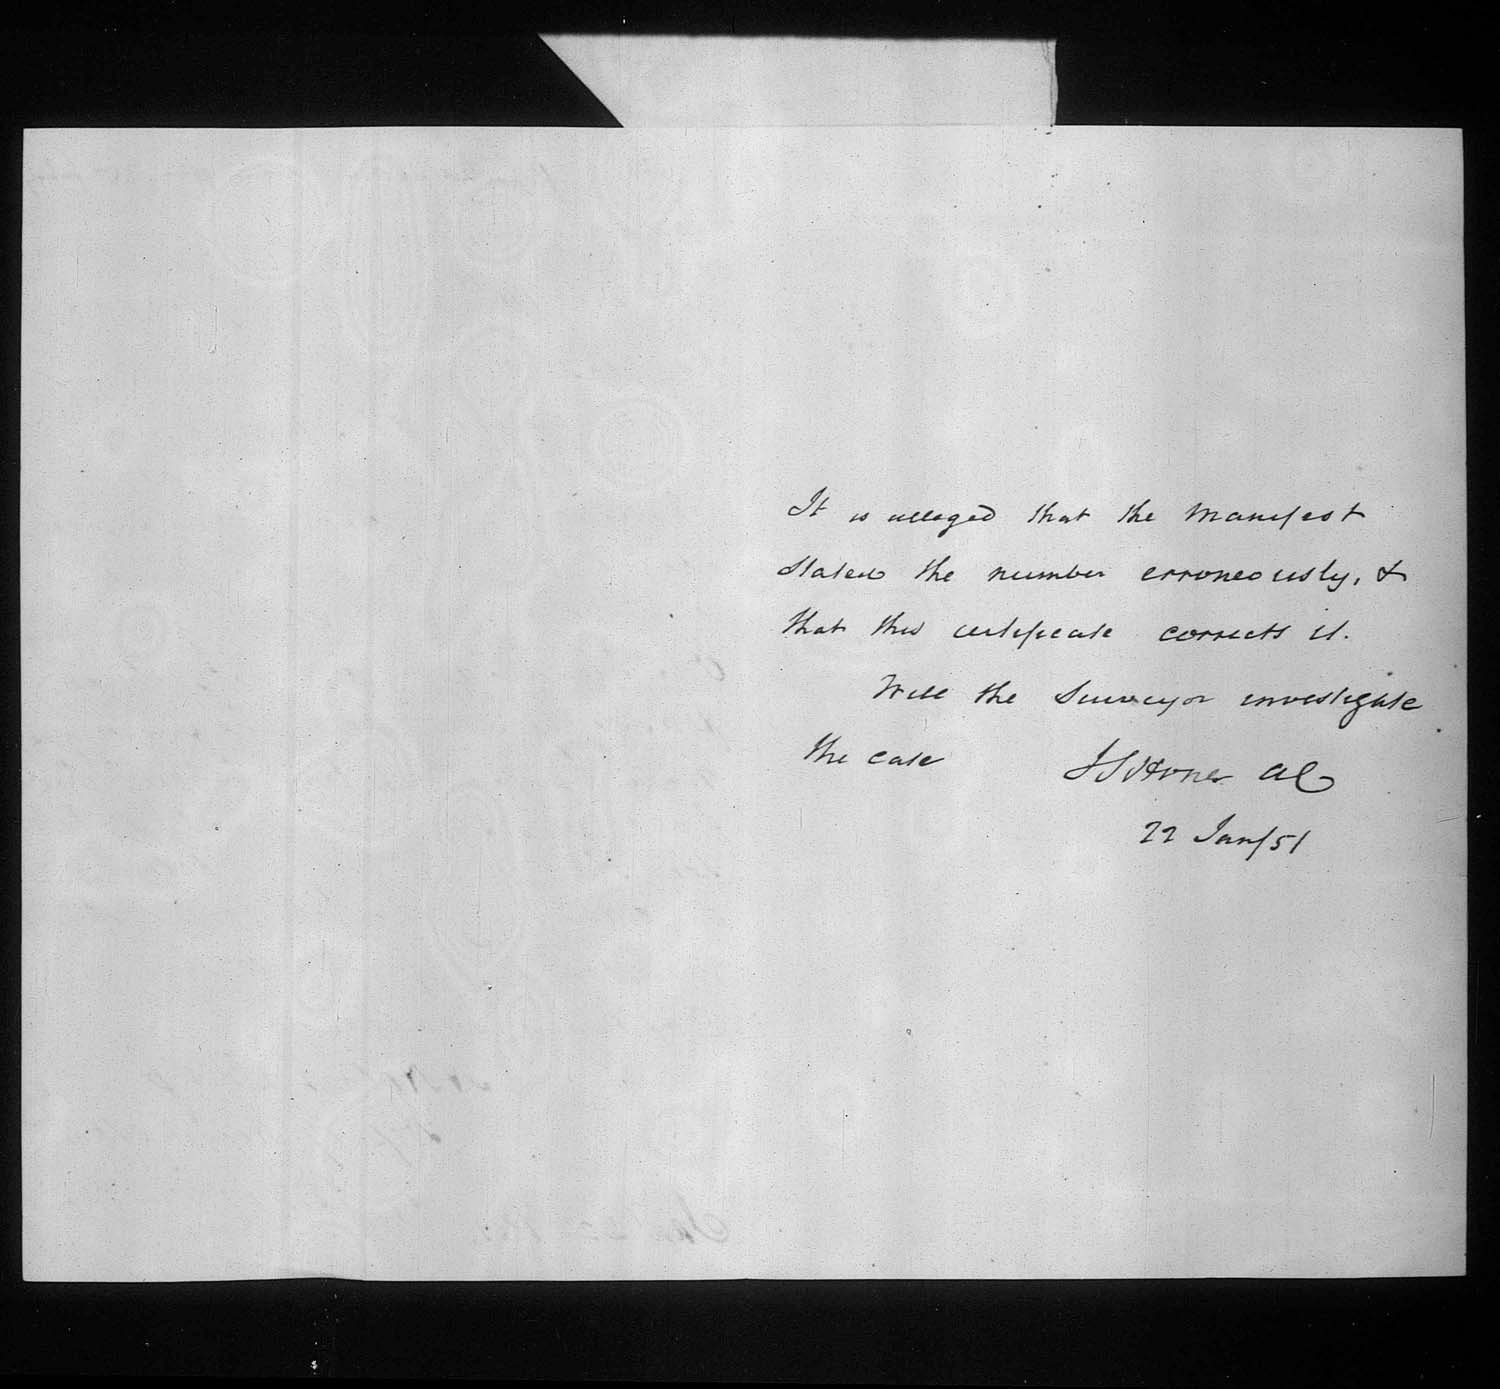 It is alleged that the Manifest
stated the number erroneously, &
that this certificate corrects it.
Will the Surveyor investigate
the case J S Hones AC
22 Jany/51